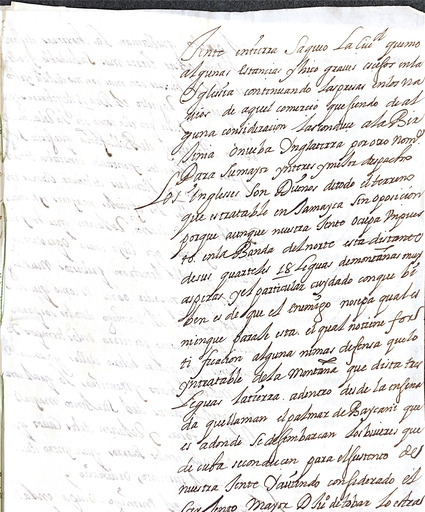 Jente entierra Saqueo La Ciud quemo
algunas estancias y hiço graues excesos en la
Iglesia continuando las presas en los na
uios de aquel comercio que siendo de al
guna consideracion las conque a la Bir
Jinia o nueba Ynglaterra por otro nombre
Para su mayor ynteres y mejor despacho
Los Yngleses son Dueños de todo el terreno
que es tratable en Jamayca sin oposicion
porque aunque nuestra Jente ocupa un pues
to en la Banda del norte esta distante
de sus quarteles 18 leguas de montañas muy
asperas y el particular cuydado con que bi
ben es de que el enemigo no sepa qual es
camino para este el qual no tiene for
tificacion alguna ni mas defensa que lo
yntratable de la Montaña que dista tres
leguas la tierra adentro desde la ensena
da que llaman el palmar de Bayamt que
es adonde se desembarcan los biueres que
de cuba se conducen para el sustento de
nuestra Jente y auiendo considerado el
Sargento Mayor D de tobar lo